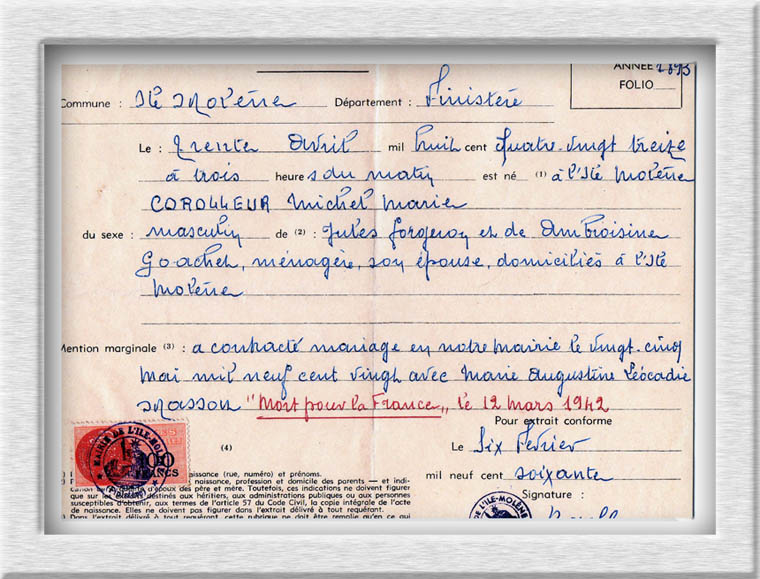 ANNÉE 1893
FOLIO
Commune : Ile Molène Département : Finistère
Le : trente Avril mil huit cent quatre-vingt treize
à trois heures du matin est né (1) à l'Ile Molène
COROLLEUR Michel Marie
du sexe : masculin de (2) : Jules forgeron et de Ambroisine
Goachet, ménagère, son épouse, domiciliés à l'Ile
Molène
Mention marginale (3) : a contracté mariage en notre mairie le vingt-cinq
mai mil neuf cent vingt avec Marie Augustine Léocadie
Masson "Mort pour la France", le 12 mars 1942
Pour extrait conforme
(4)
Le Six Février
mil neuf cent soixante
Signature :
MAIRIE DE L'ILE-MOLÈNE
100
FRANCS
(FINISTÈRE)
naissance (rue, numéro) et prénoms.
naissance, profession et domicile des parents — et indi-
d'époux des père et mère. Toutefois, ces indications ne doivent figurer
que sur les destinés aux héritiers, aux administrations publiques ou aux personnes
susceptibles d'obtenir, aux termes de l'article 57 du Code Civil, la copie intégrale de l'acte
de naissance. Elles ne doivent pas figurer dans l'extrait délivré à tout requérant.
Dans l'extrait délivré à tout requérant, cette rubrique ne doit être remplie qu'en ce qui
DE L'ILE-MOLÈNE